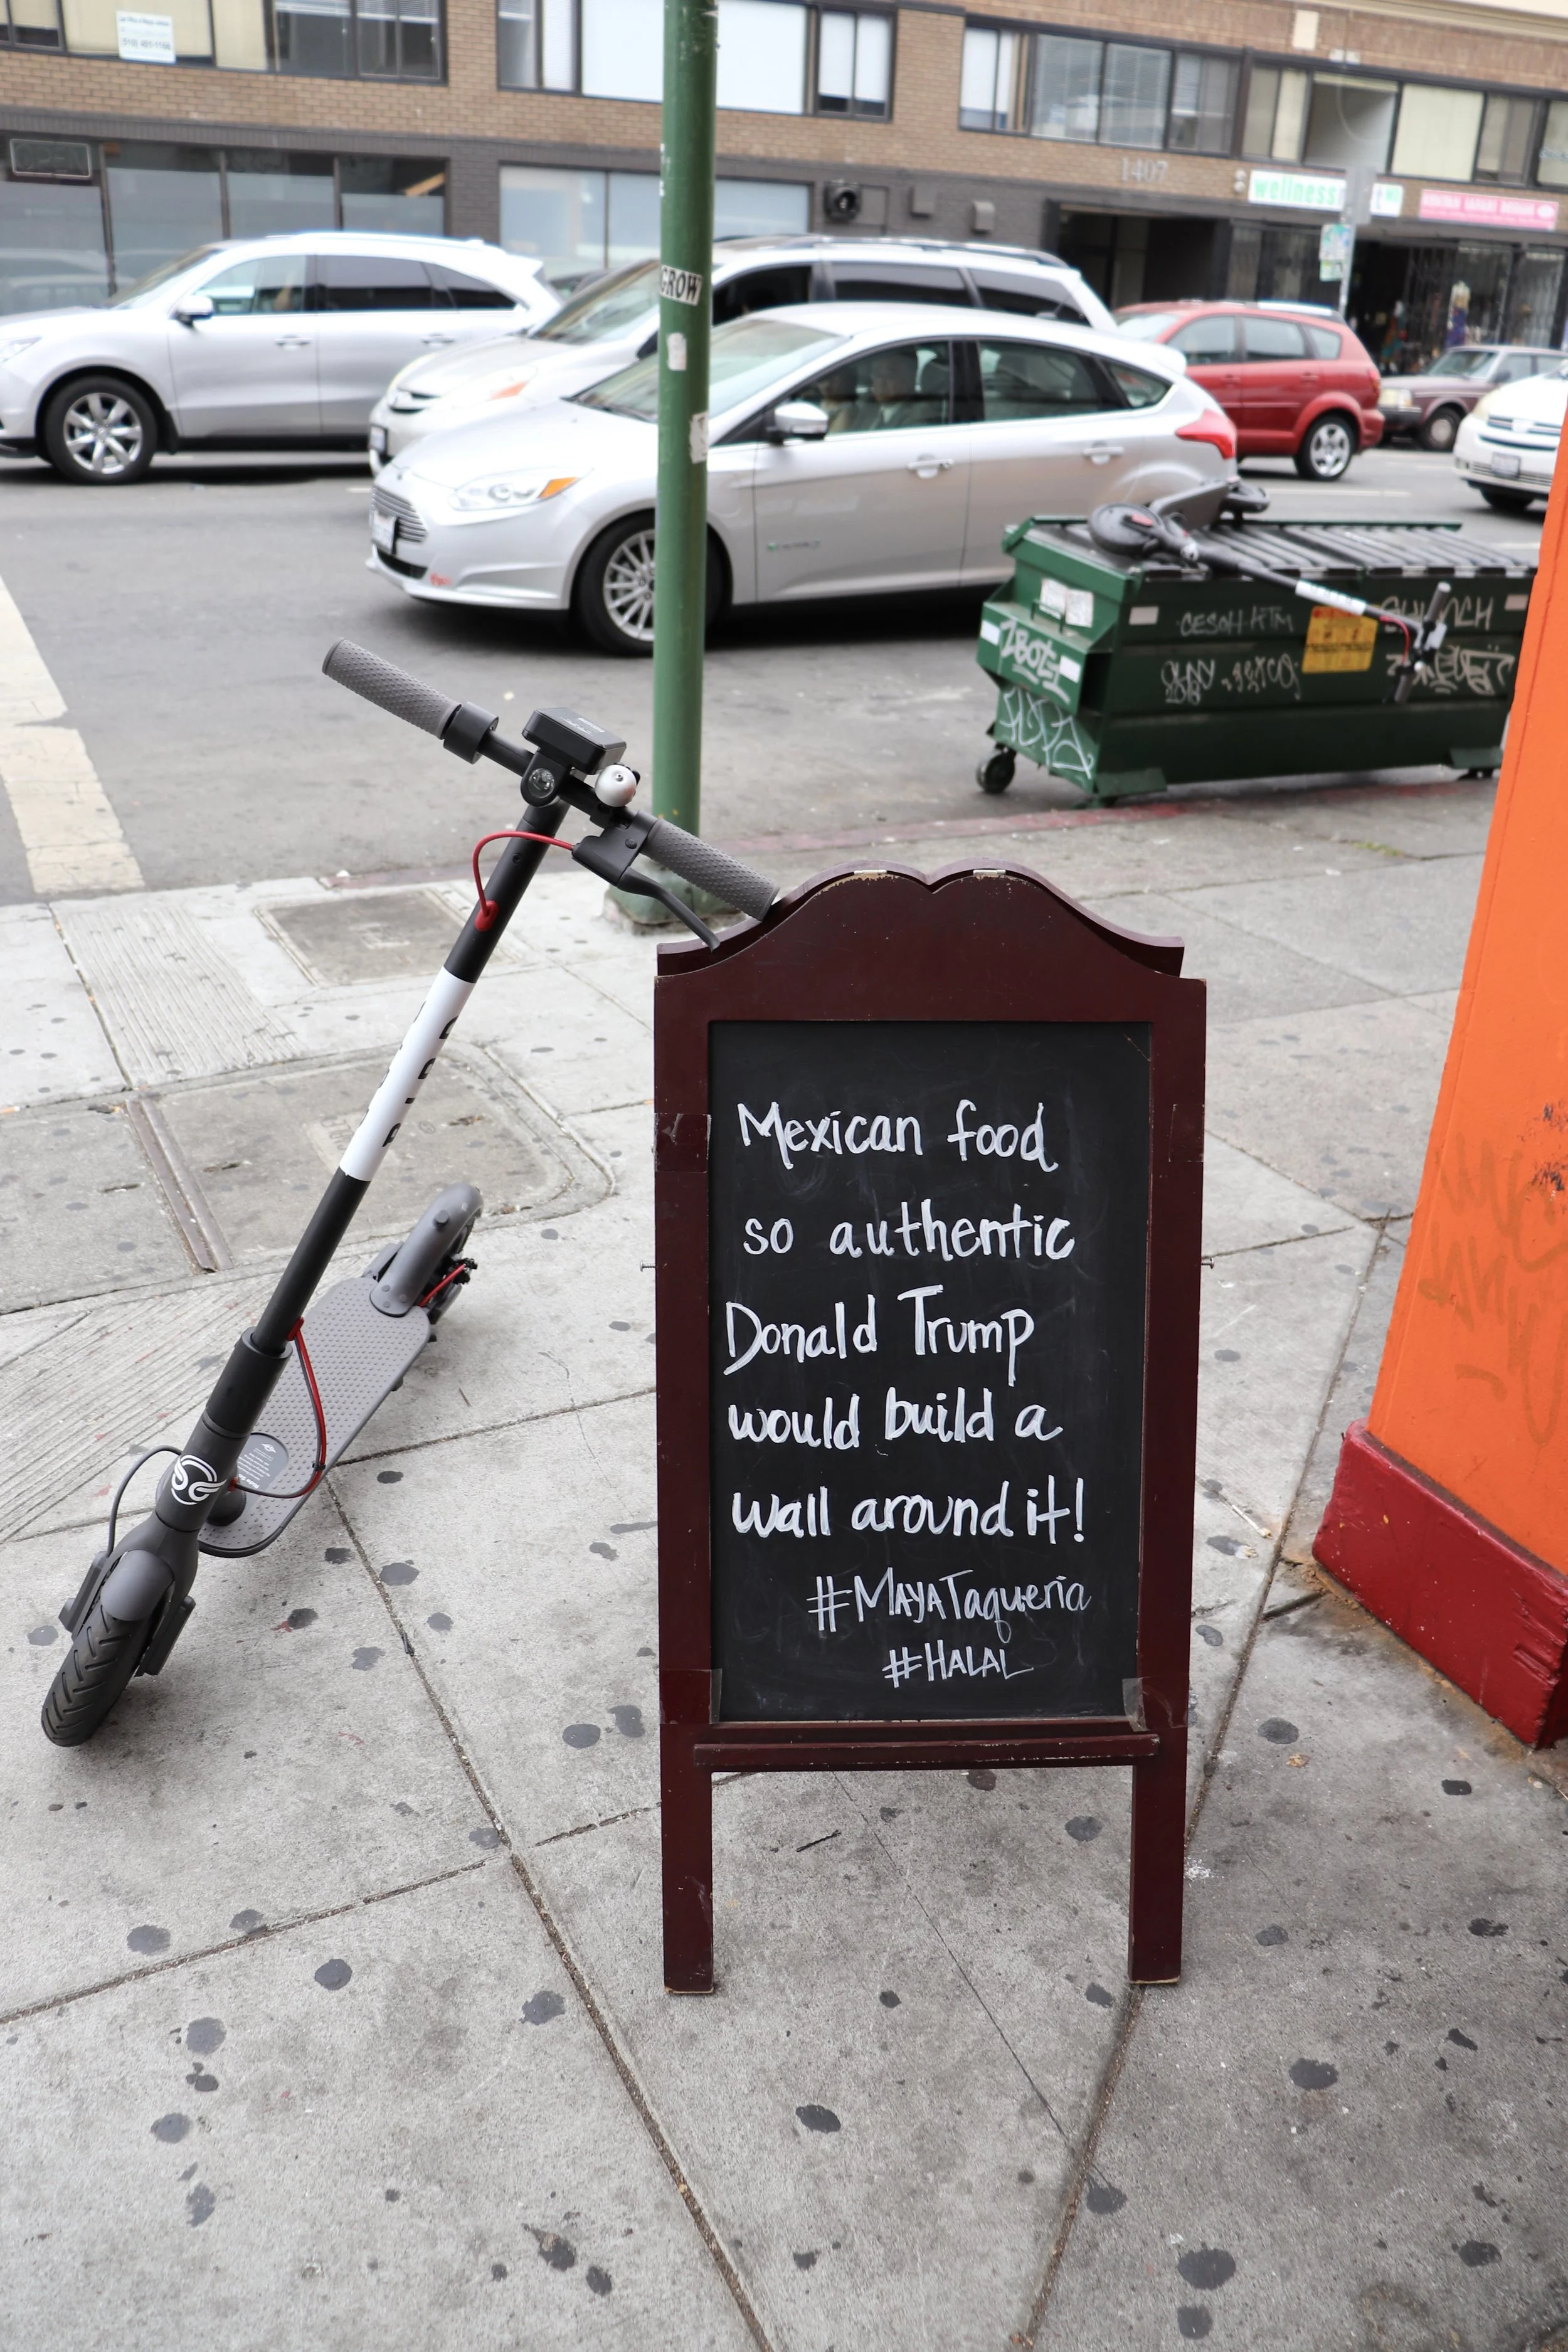 1407
wellness
GROW
Mexican food
so authentic
Donald Trump
would build a
wall around it!
#MAYATaqueria
#HALAL